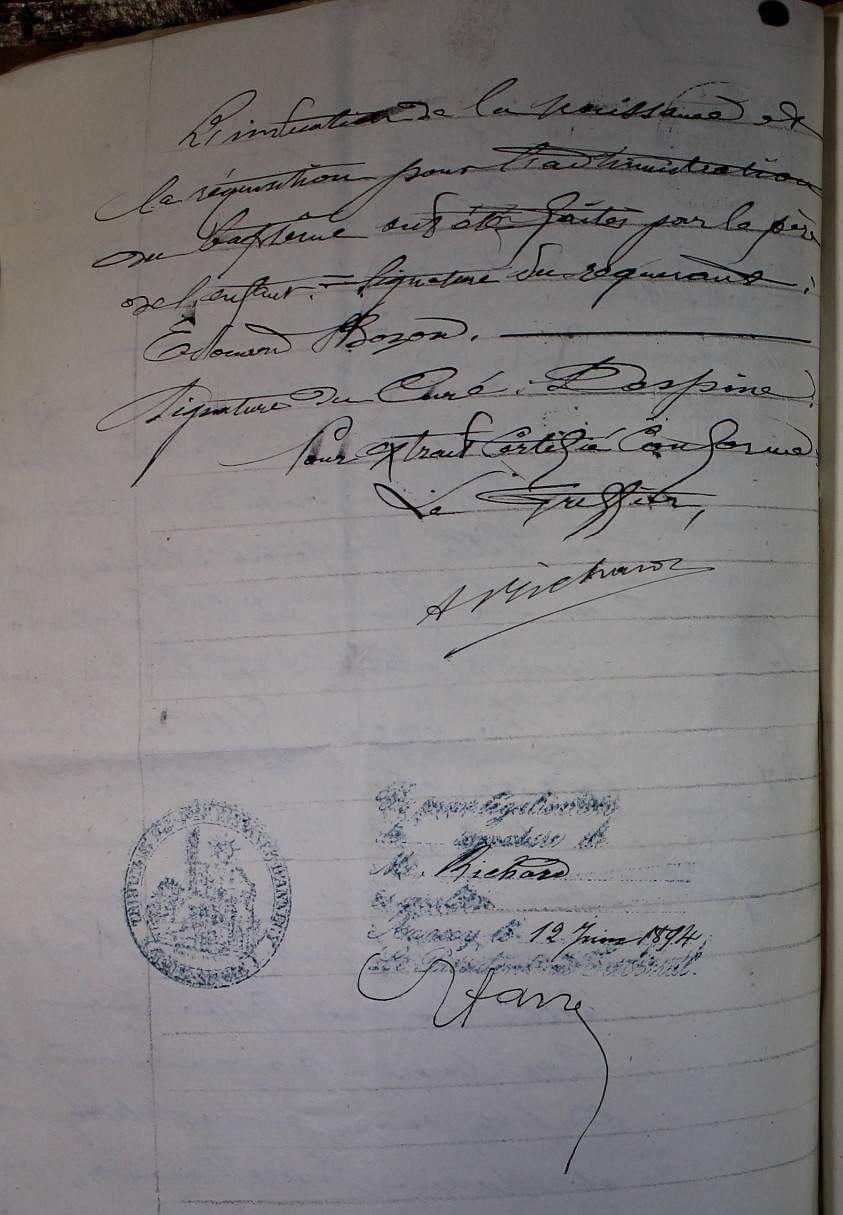 L'indication de la naissance et
la réquisition pour l'administration
du baptême ont été faites par le père
de l'enfant. = Signature du requérant:
Edouard Bozon.
Signature du Curé: Daspine.
Pour extrait Certifié Conforme
Le Greffier,
A Richard
TRIBUNAL D'ANNECY
Vu pour légalisation
de signature de
Mr. Richard
Annecy, le 12 Juin 1894
Le Président du Tribunal.